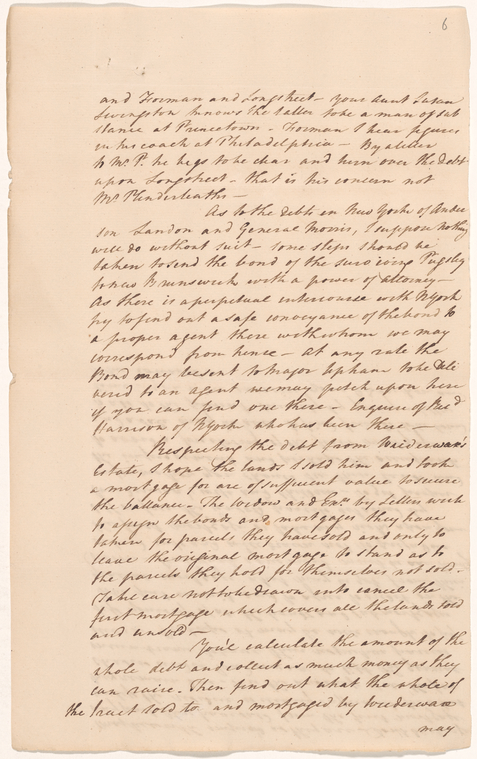 6
and Forman and Longstreet - your Aunt Susan
Livingston knows the latter to be a man of sub
stance at Princetown - Forman I hear figures
in his coach at Philadelphia - By a letter
to Mr P. he begs to be clear and turn over the Debt
upon Longstreet - that is his concern not
Mr Plenderleaths -
As to the debts in New York of Ander
son Landon and General Morris, I suppose nothing
will do without suit - some steps should be
taken to send the bond of the surviving Pugsley
to New Brunswick with a power of attorney -
As there is a perpetual intercourse with NYork
try to find out a safe conveyance of the bond to
a proper agent there with whom we may
correspond from hence - at any rate the
Bond may be sent to Major Upham to be deli
vered to an agent we may pitch upon here
if you can find one there - Enquire of Ricd
Harrison of NYork who has been there -
Respecting the debt from
Estate, I hope the lands I sold him and took
a mortgage for are of sufficient value to secure
the ballance - The widow and Exrs by Letters wish
to assign the bonds and mortgages they have
taken for parcels they have sold and only to
leave the original mortgage to stand as to
the parcels they hold for themselves not sold -
Take care not to be drawn into cancel the
first mortgage which covers all the lands sold
and unsold -
You'l calculate the amount of the
whole debt and collect as much money as they
can raise. Then find out what the whole of
the Tract sold to and mortgaged by
may